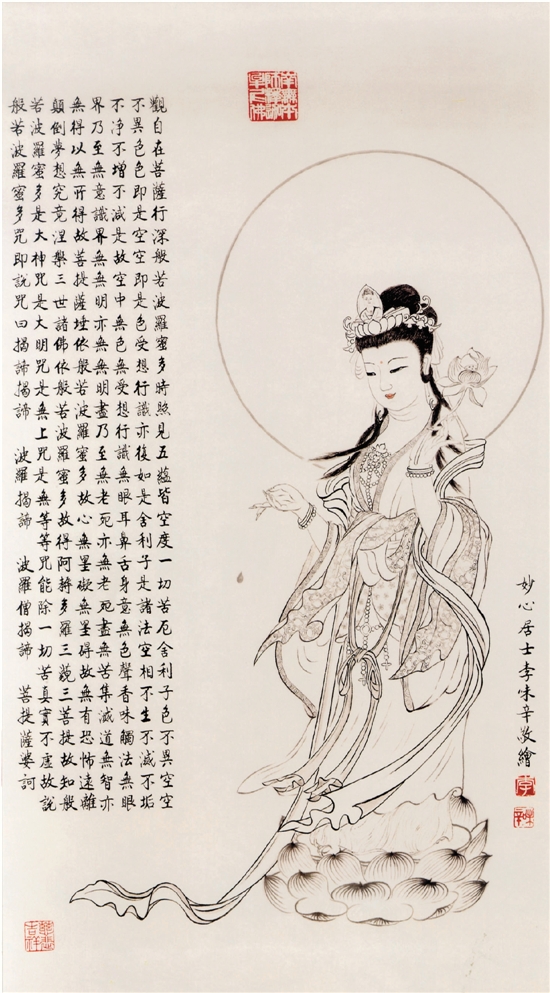 南無本師釋迦牟尼佛
觀自在菩薩行深般若波羅蜜多時照見五蘊皆空度一切苦厄舍利子色不異空空
不異色色即是空空即是色受想行識亦復如是舍利子是諸法空相不生不滅不垢
不净不增不減是故空中無色無受想行識無眼耳鼻舌身意無色聲香味觸法無眼
界乃至無意識界無無明亦無無明盡乃至無老死亦無老死盡無苦集滅道無智亦
無得以無所得故菩提薩埵依般若波羅蜜多故心無罣礙無罣碍故無有恐怖遠離
顛倒夢想究竟涅槃三世諸佛依般若波羅蜜多故得阿耨多羅三藐三菩提故知般
若波羅蜜多是大神咒是大明咒是無上咒是無等等咒能除一切苦真實不虛故說
般若波羅蜜多咒即說咒曰揭諦揭諦 波羅揭諦 波羅僧揭諦 菩提薩婆訶
妙心居士李味辛敬繪
李
吉祥